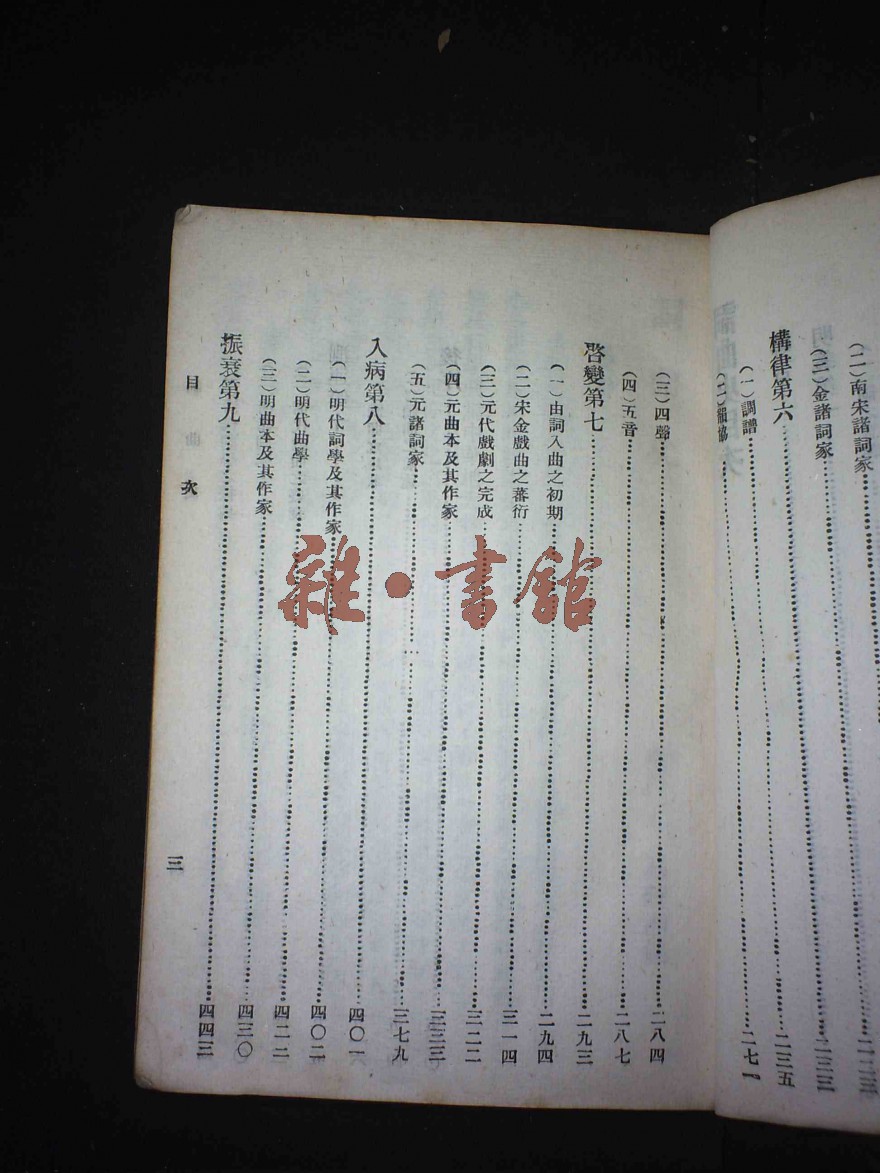 (二)南宋諸詞家
(三)金諸詞家……二三三
構律第六……二三五
(一)調譜……二七一
(三)四聲……二八四
(四)五音……二八七
啓變第七……二九三
(一)由詞入曲之初期……二九四
(二)宋金戲曲之蕃衍……三一四
(三)元代戲劇之完成……三二二
(四)元曲本及其作家……三三三
(五)元諸詞家……三七九
入病第八……四〇一
(一)明代詞學及其作家……四〇二
(二)明代曲學……四二二
(三)明曲本及其作家……四三〇
振衰第九……四四三
目次
三
雜·書館